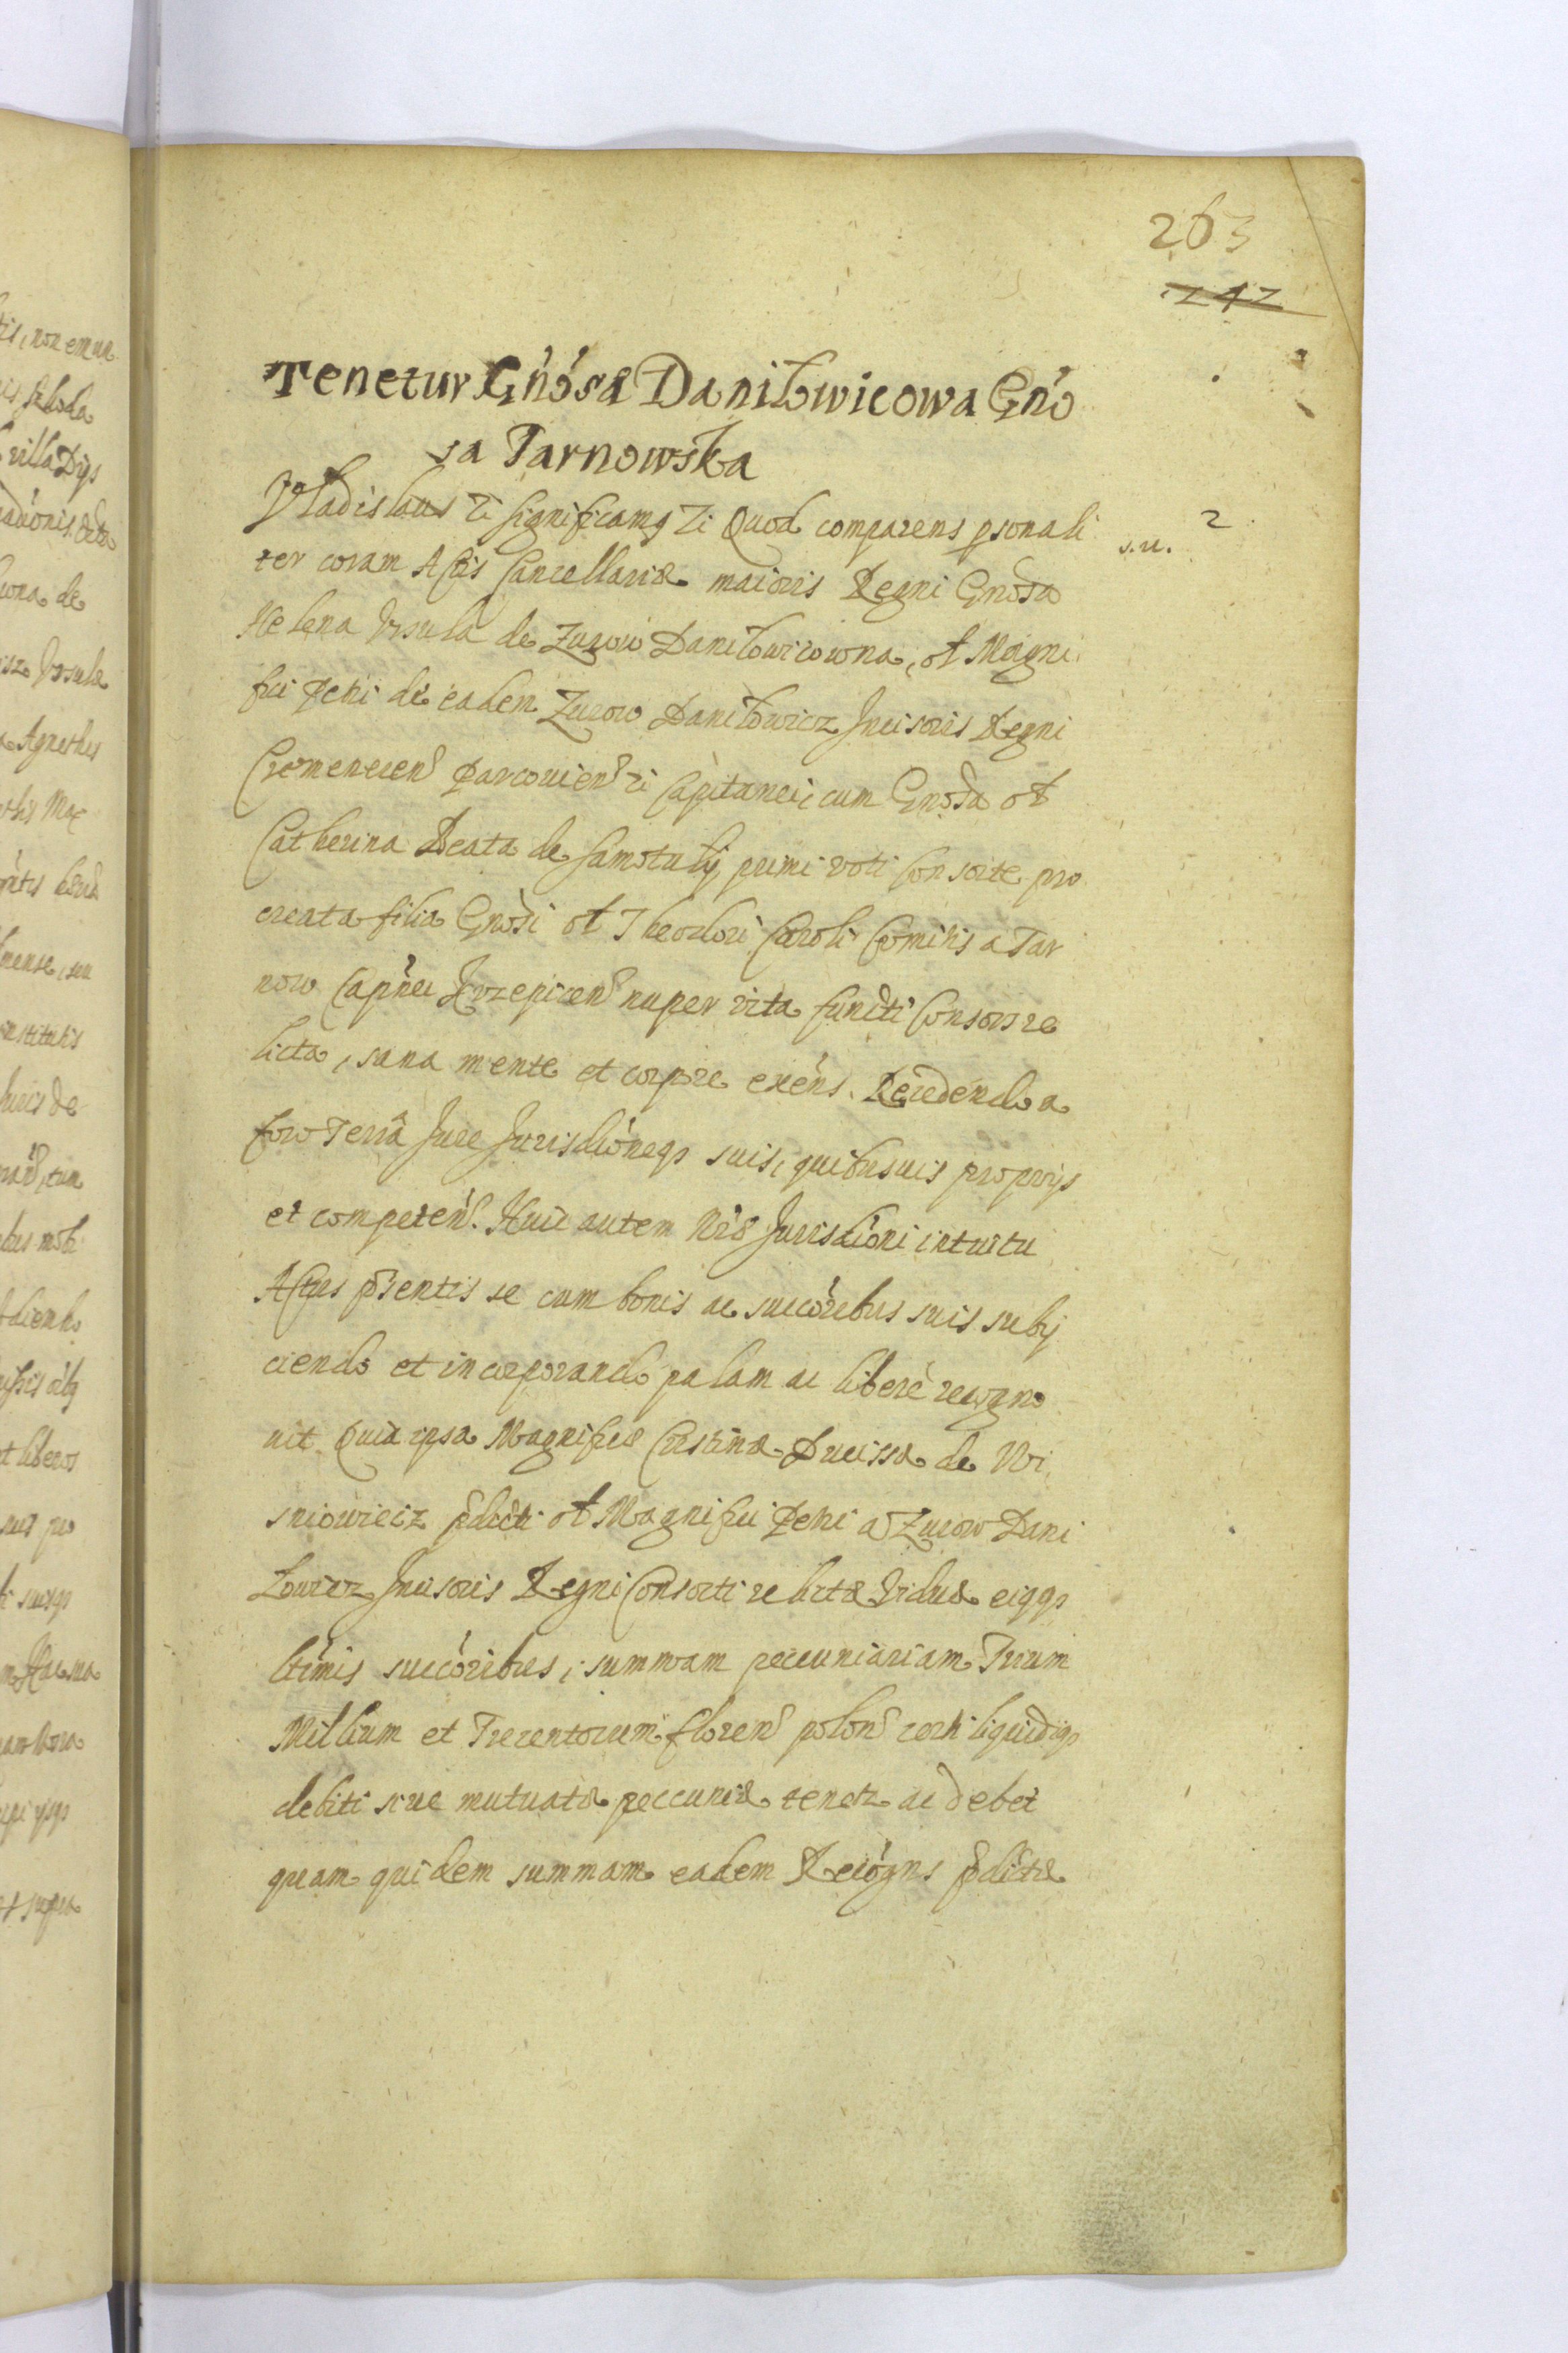 263
242
Tenetur Gńósæ Daniłowicowa Gńó
sa Tarnowska
Vladislaus &c significamus &c Quod comparens psonali
s. u. 2
ter coram Actis Cancellariæ maioris Regni Gnosa
Helena Vrsula de Zurow Daniłowicowna, ol Magni
fici Petri de eadem Zurow Daniłowicz Incisoris Regni
Cremenecen Parcouien &c Capitanei, cum Gnosa ol
Catherina Beata de Samotuly primi voti Consorte pro
creata filia Gnosi ol Theodori Caroli Comitis a Tar
now Capnei Krzepicen nuper vita functi Consors re
licta, sana mente et corpore exens. Recedendo a
foro Terra Jure Jurisdioneqз suis, quibusuis proprijs
et competen. Huic autem Nræ Jurisdioni intuitu
Actus pñsentis se cum bonis ac succoribus suis subij
ciendo et incorporando palam ac liberè recogno
uit Quia ipsa Magnificæ Cristinæ Ducissæ de Wi
sniowiecz pdicti ol Magnifici Petri a Zurow Dani
Łowicz Incisoris Regni Consorti relictæ Viduæ eiqqз
ltimis succoribus, summam peccuniariam Trium
Millium et Trecentorum floren polon certi liquidiqз
debiti siue mutuatæ peccuniæ tenetz ac debet
quam quidem summam eadem Recogns pdictæ